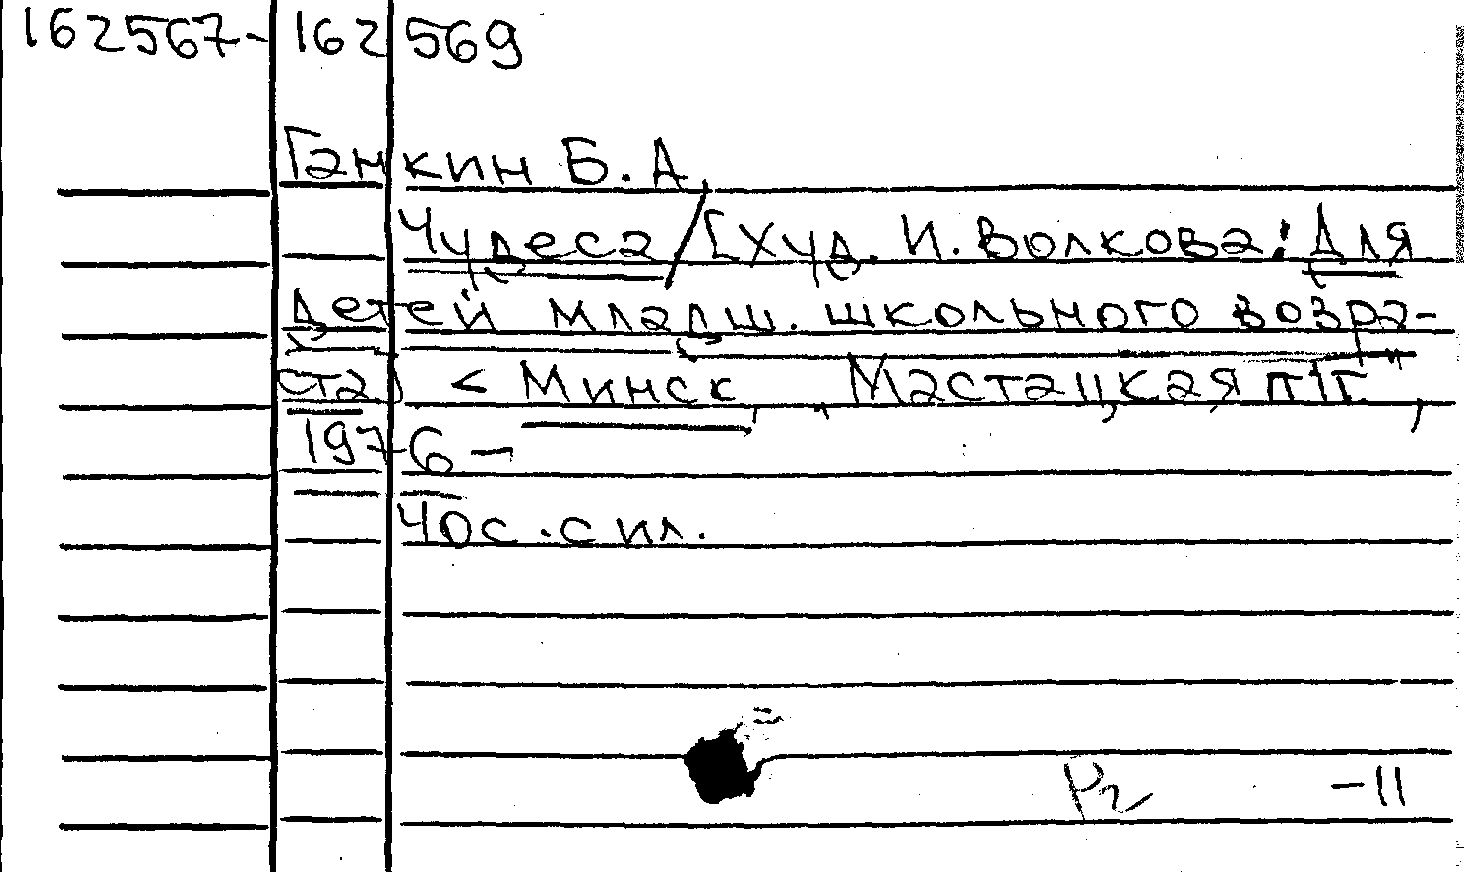 162567-162569
Ганкин Б. А.
Чудеса/[Худ. И. Волкова: Для
детей младш. школьного возра-
ста] < Минск, "Мастацкая літ",
1976 —
40с. с ил.
-11